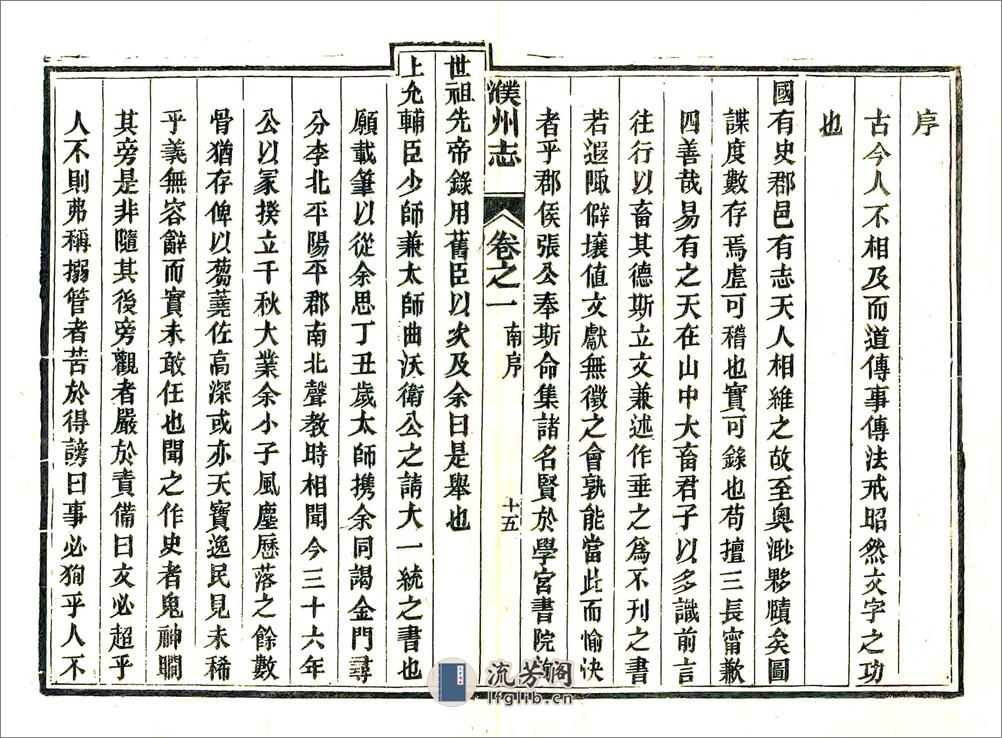 序
古今人不相及而道傳事傳法戒昭然文字之功
也
國有史郡邑有志天人相維之故至奧渺夥賾矣圖
諜度數存焉虛可稽也實可錄也苟擅三長甯歉
四善哉易有之天在山中大畜君子以多識前言
往行以畜其德斯立文兼述作垂之爲不刊之書
若遐陬僻壤值文獻無徵之會孰能當此而愉快
者乎郡侯張公奉斯命集諸名賢於學宮書院
濮州志 卷之一 南序 十五
世祖先帝錄用舊臣以次及余曰是舉也
上允輔臣少師兼太師曲沃衛公之請大一統之書也
願載筆以從余思丁丑歲太師携余同謁金門尋
分李北平陽平郡南北聲教時相聞今三十六年
公以冢揆立千秋大業余小子風塵歷落之餘數
骨猶存俾以蒭蕘佐高深或亦天寶逸民見未稀
乎義無容辭而實未敢任也聞之作史者鬼神瞯
其旁是非隨其後旁觀者嚴於責備曰文必超乎
人不則弗稱搦管者苦於得謗曰事必狥乎人不
流芳閣
lfglib.cn